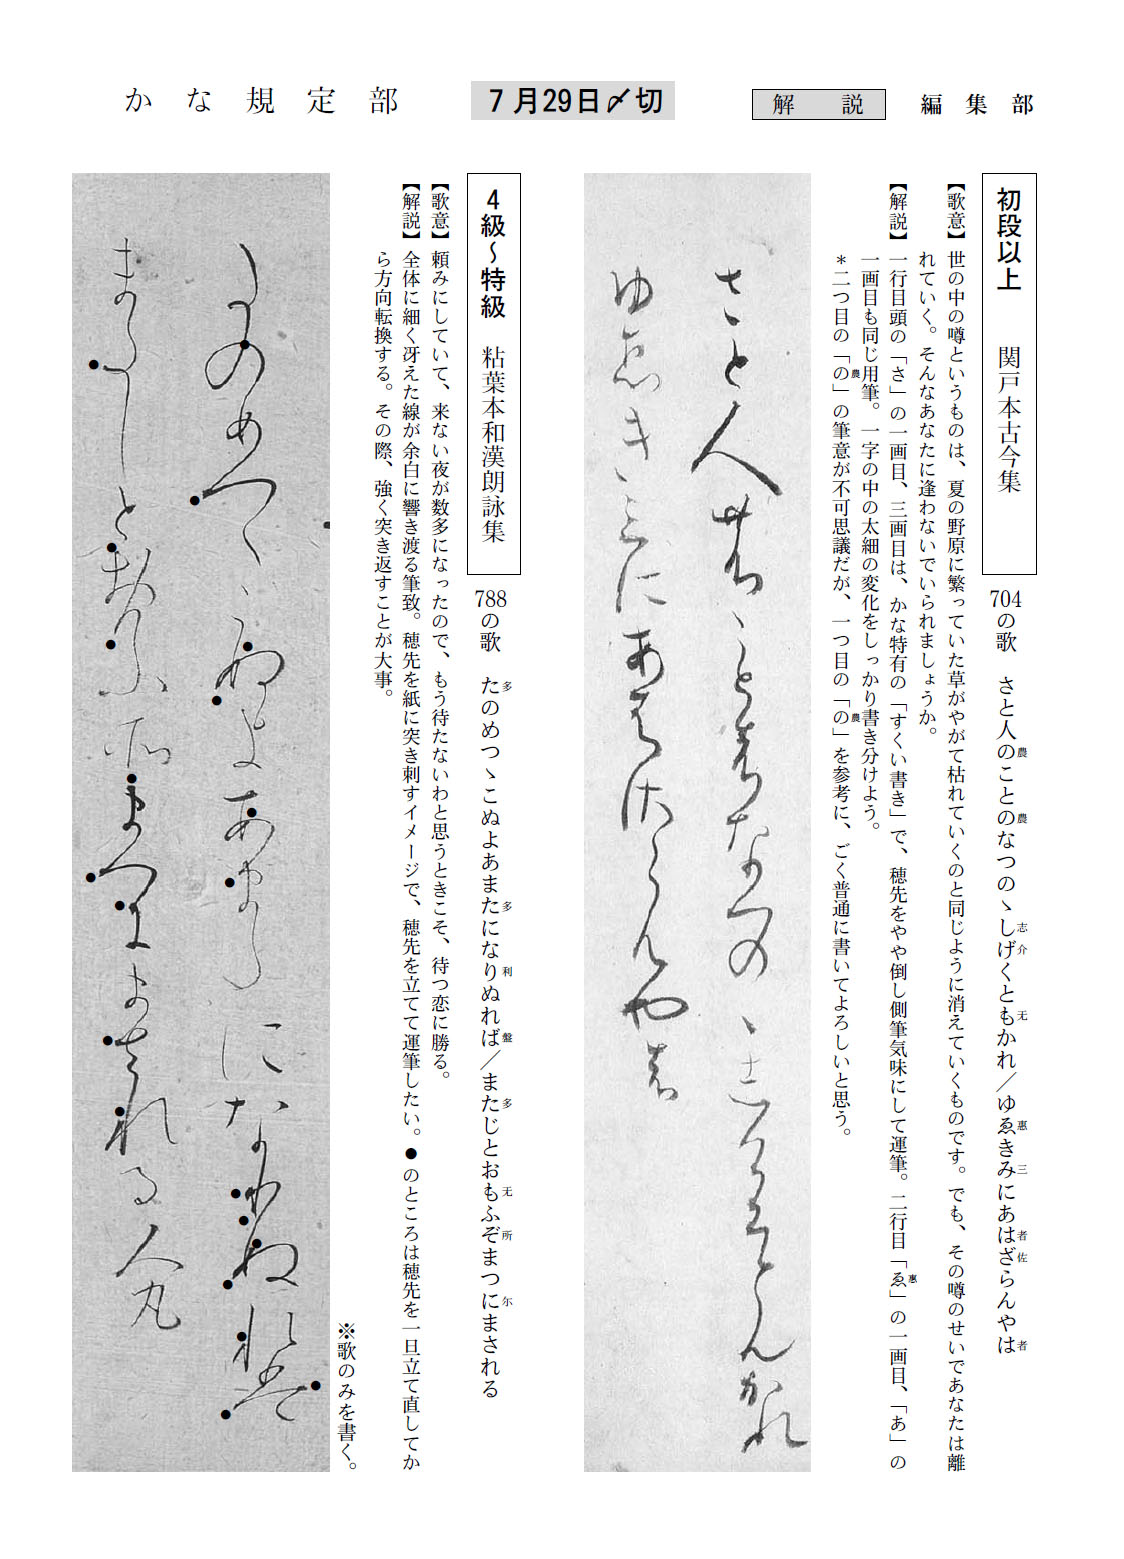 かな規定部
7月29日〆切
解説 編集部
初段以上 関戸本古今集
704の歌 さと人の農ことの農なつのゝし志げ介くとも无かれ／ゆゑ惠きみ三にあは者ざ佐らんやは者
【歌意】世の中の噂というものは、夏の野原に繁っていた草がやがて枯れていくのと同じように消えていくものです。でも、その噂のせいであなたは離
れていく。そんなあなたに逢わないでいられましょうか。
【解説】一行目頭の「さ」の一画目、三画目は、かな特有の「すくい書き」で、穂先をやや倒し側筆気味にして運筆。二行目「ゑ惠」の一画目、「あ」の
一画目も同じ用筆。一字の中の太細の変化をしっかり書き分けよう。
＊二つ目の「の農」の筆意が不可思議だが、一つ目の「の農」を参考に、ごく普通に書いてよろしいと思う。
さと人農こと農なつのゝ志介くと无かれ
ゆ惠きみにあ者佐らんや者
4級～特級 粘葉本和漢朗詠集
788の歌 た多のめつゝこぬよあまた多になり利ぬれば盤／また多じとおも无ふぞ所まつに尓まされる
【歌意】頼みにしていて、来ない夜が数多になったので、もう待たないわと思うときこそ、待つ恋に勝る。
【解説】全体に細く冴えた線が余白に響き渡る筆致。穂先を紙に突き刺すイメージで、穂先を立てて運筆したい。●のところは穂先を一旦立て直してか
ら方向転換する。その際、強く突き返すことが大事。
※歌のみを書く。
多のめつゝこぬよあま多になりぬれ盤
ま多しとおもふ所まつにまされる 人丸